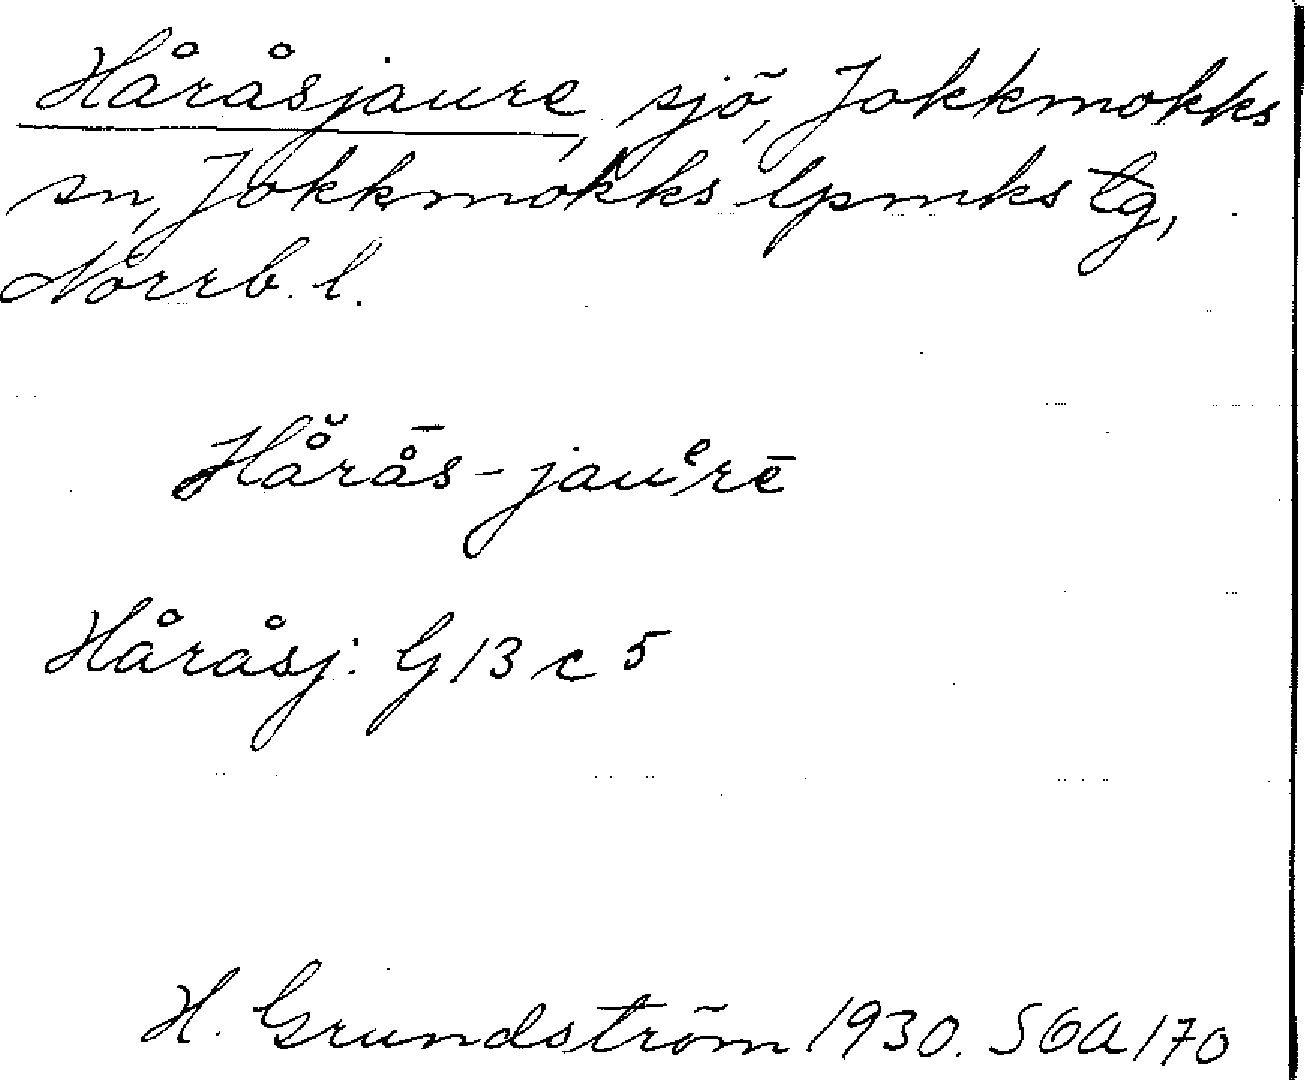 Håråsjaure, sjö, Jokkmokks
sn, Jokkmokks lpmks tg,
Norrb. l.
Hå̆rå̄s-jauᵉrē
Håråsj: G 13 c 5
H. Grundström 1930. SOA 170